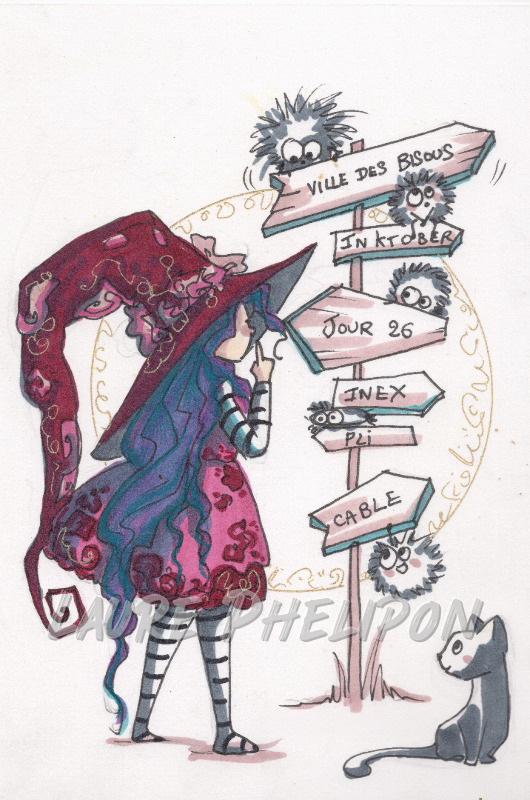 VILLE DES BISOUS
INKTOBER
JOUR 26
INEX
PLI
CABLE
LAURE PHELIPON